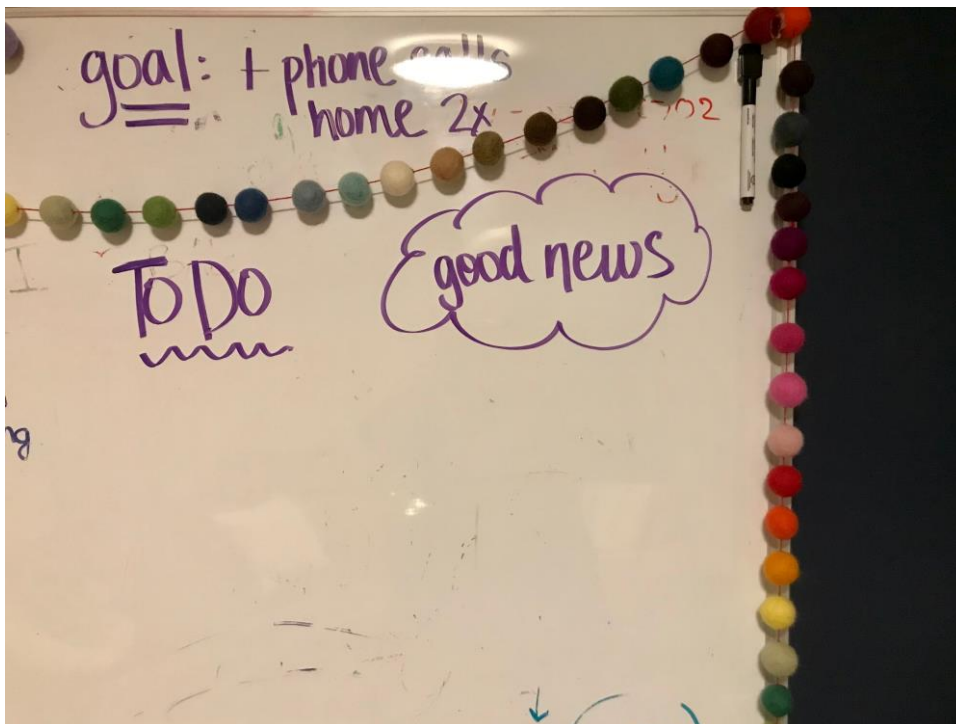 goal: + phone calls
home 2x
To Do
good news